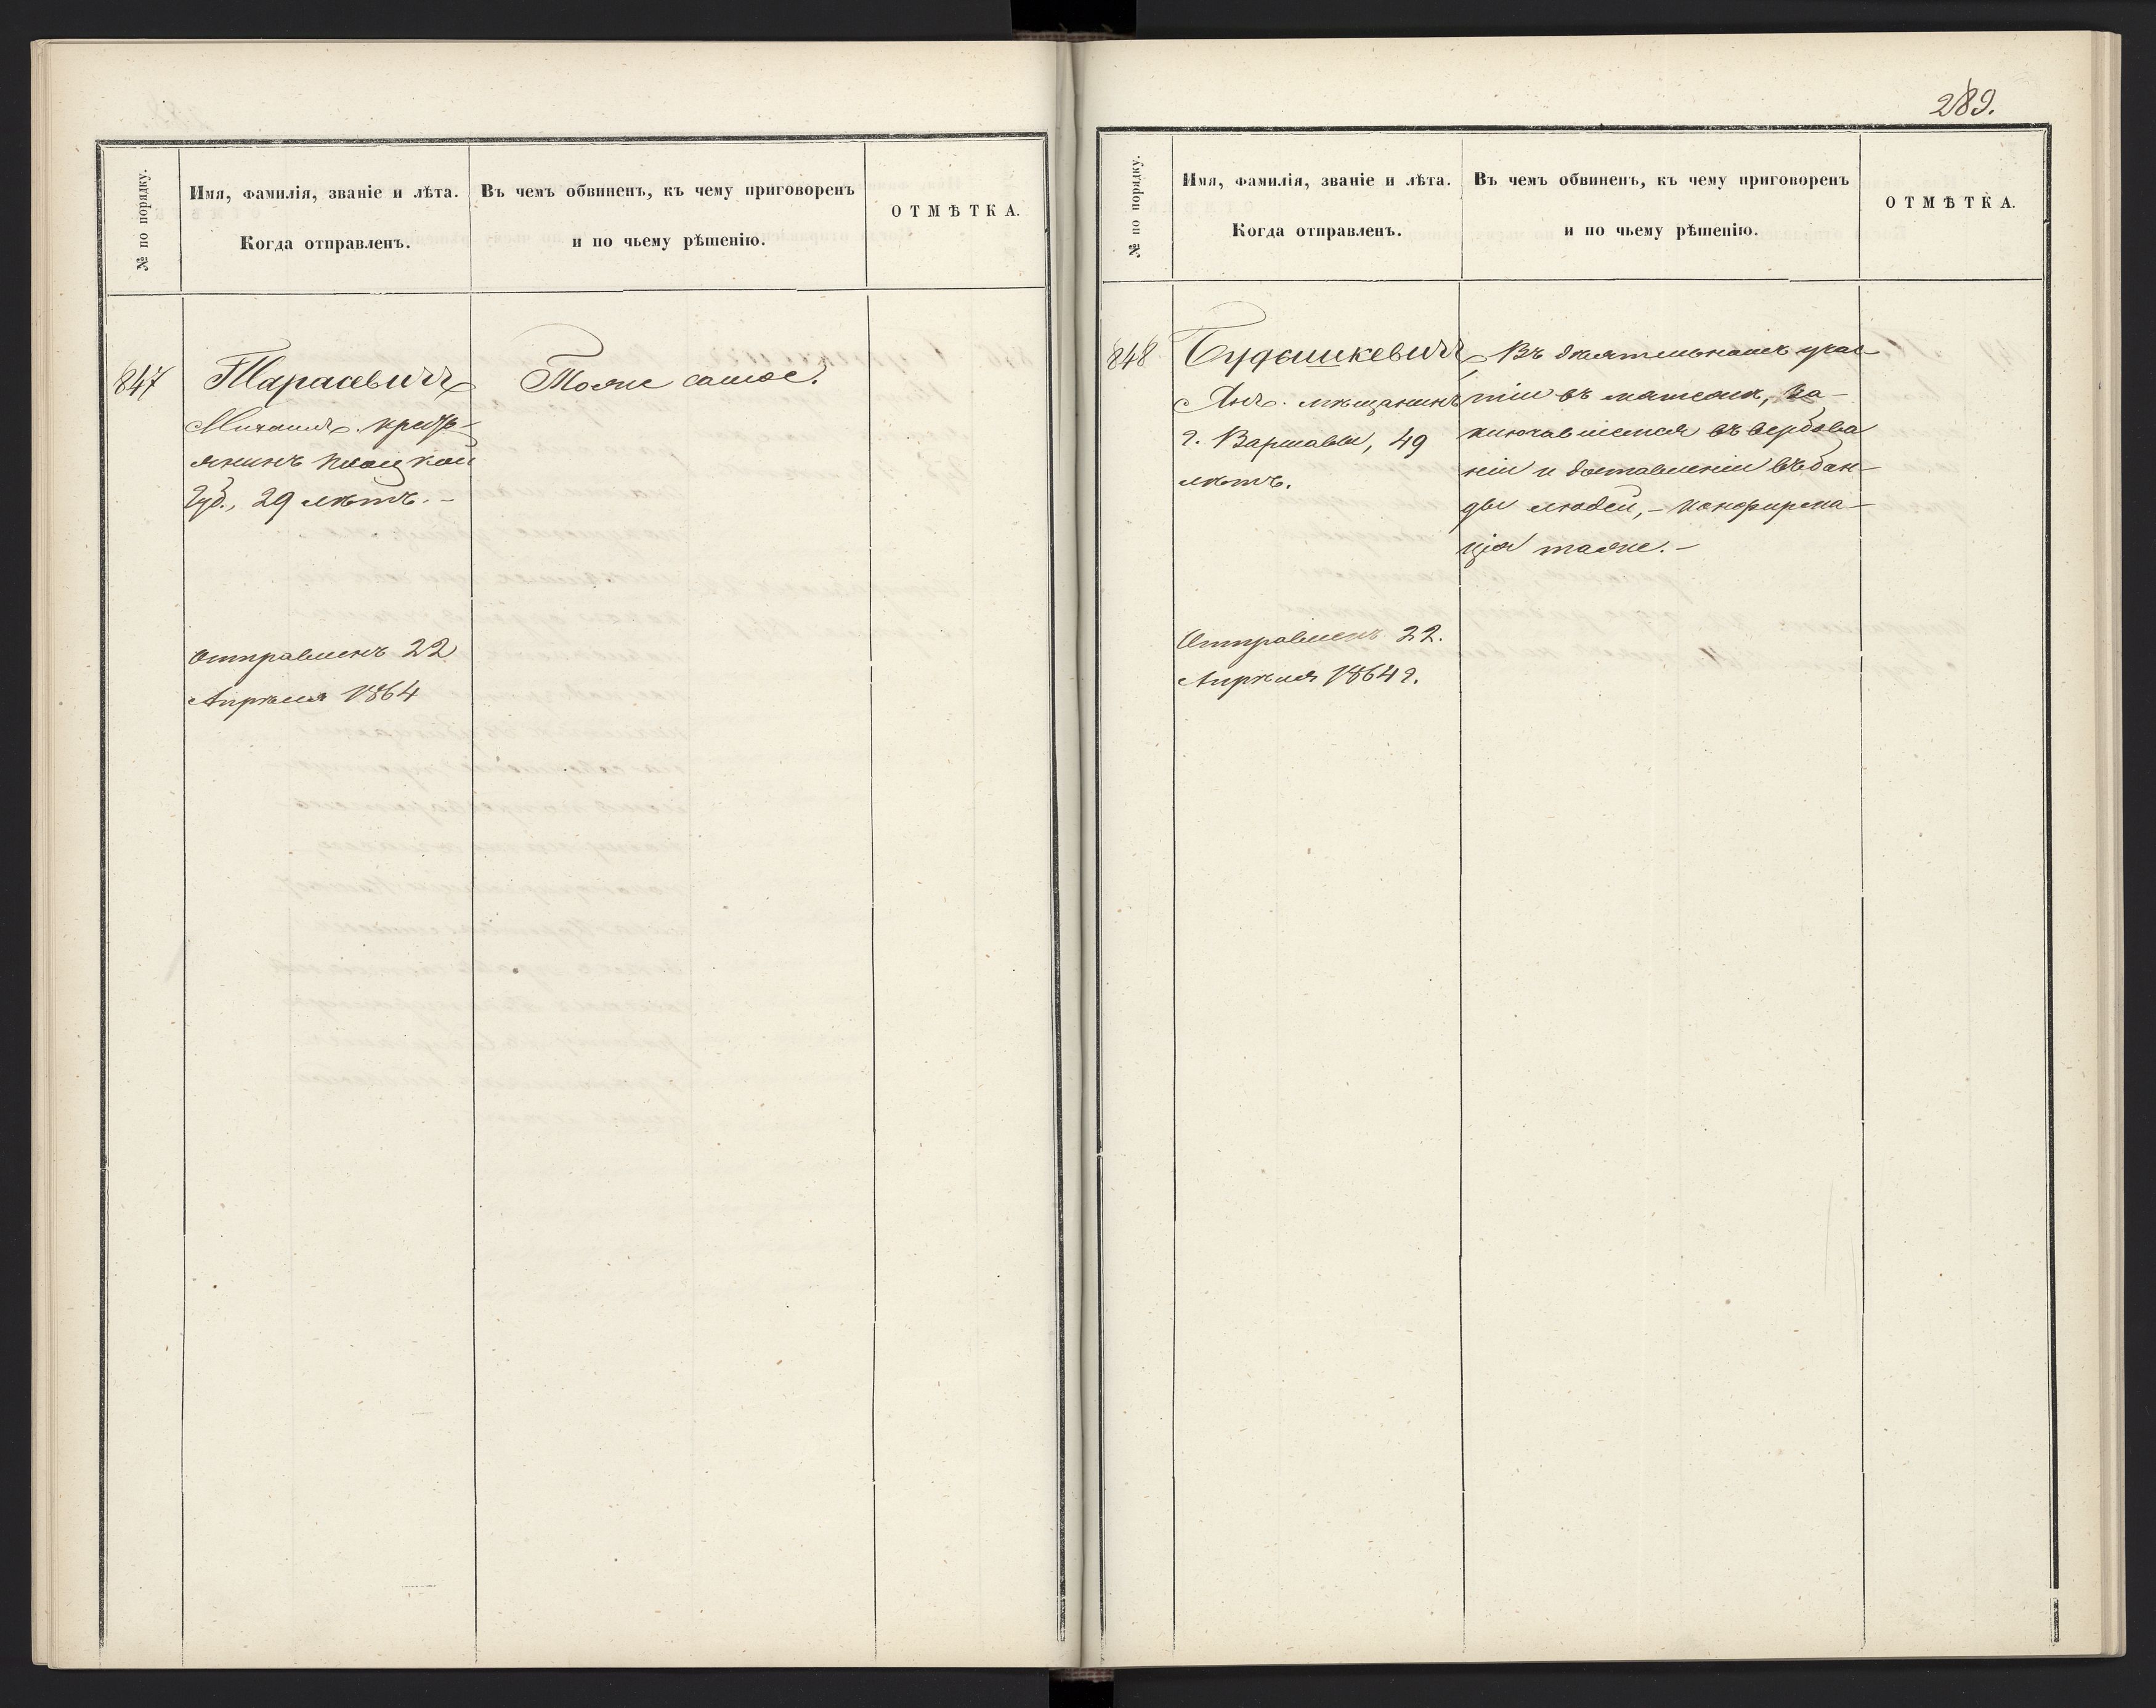 № по порядку.
Имя, фамилія, званіе и лѣта.
Когда отправленъ.
Въ чемъ обвиненъ, къ чему приговоренъ
и по чьему рѣшенію.
ОТМѢТКА.
847
Тарасевичъ
Михаилъ. кресть-
янинъ Плоцкой
Губ., 29 лѣтъ. –
Отправленъ 22
Апрѣля 1864
Тоже самое.
289.
№ по порядку.
Имя, фамилія, званіе и лѣта.
Когда отправленъ.
Въ чемъ обвиненъ, къ чему приговоренъ
и по чьему рѣшенію.
ОТМѢТКА.
848
мѣщанинъ
г. Варшавы, 49
лѣтъ.
Отправленъ 22.
Апрѣля 1864 г.
Въ дѣятельномъ учас-
тіи въ мятежѣ, за-
ключавшемся въ вербова
ніи и доставленіи въ бан-
ды людей, – конфирма-
ція таже. –